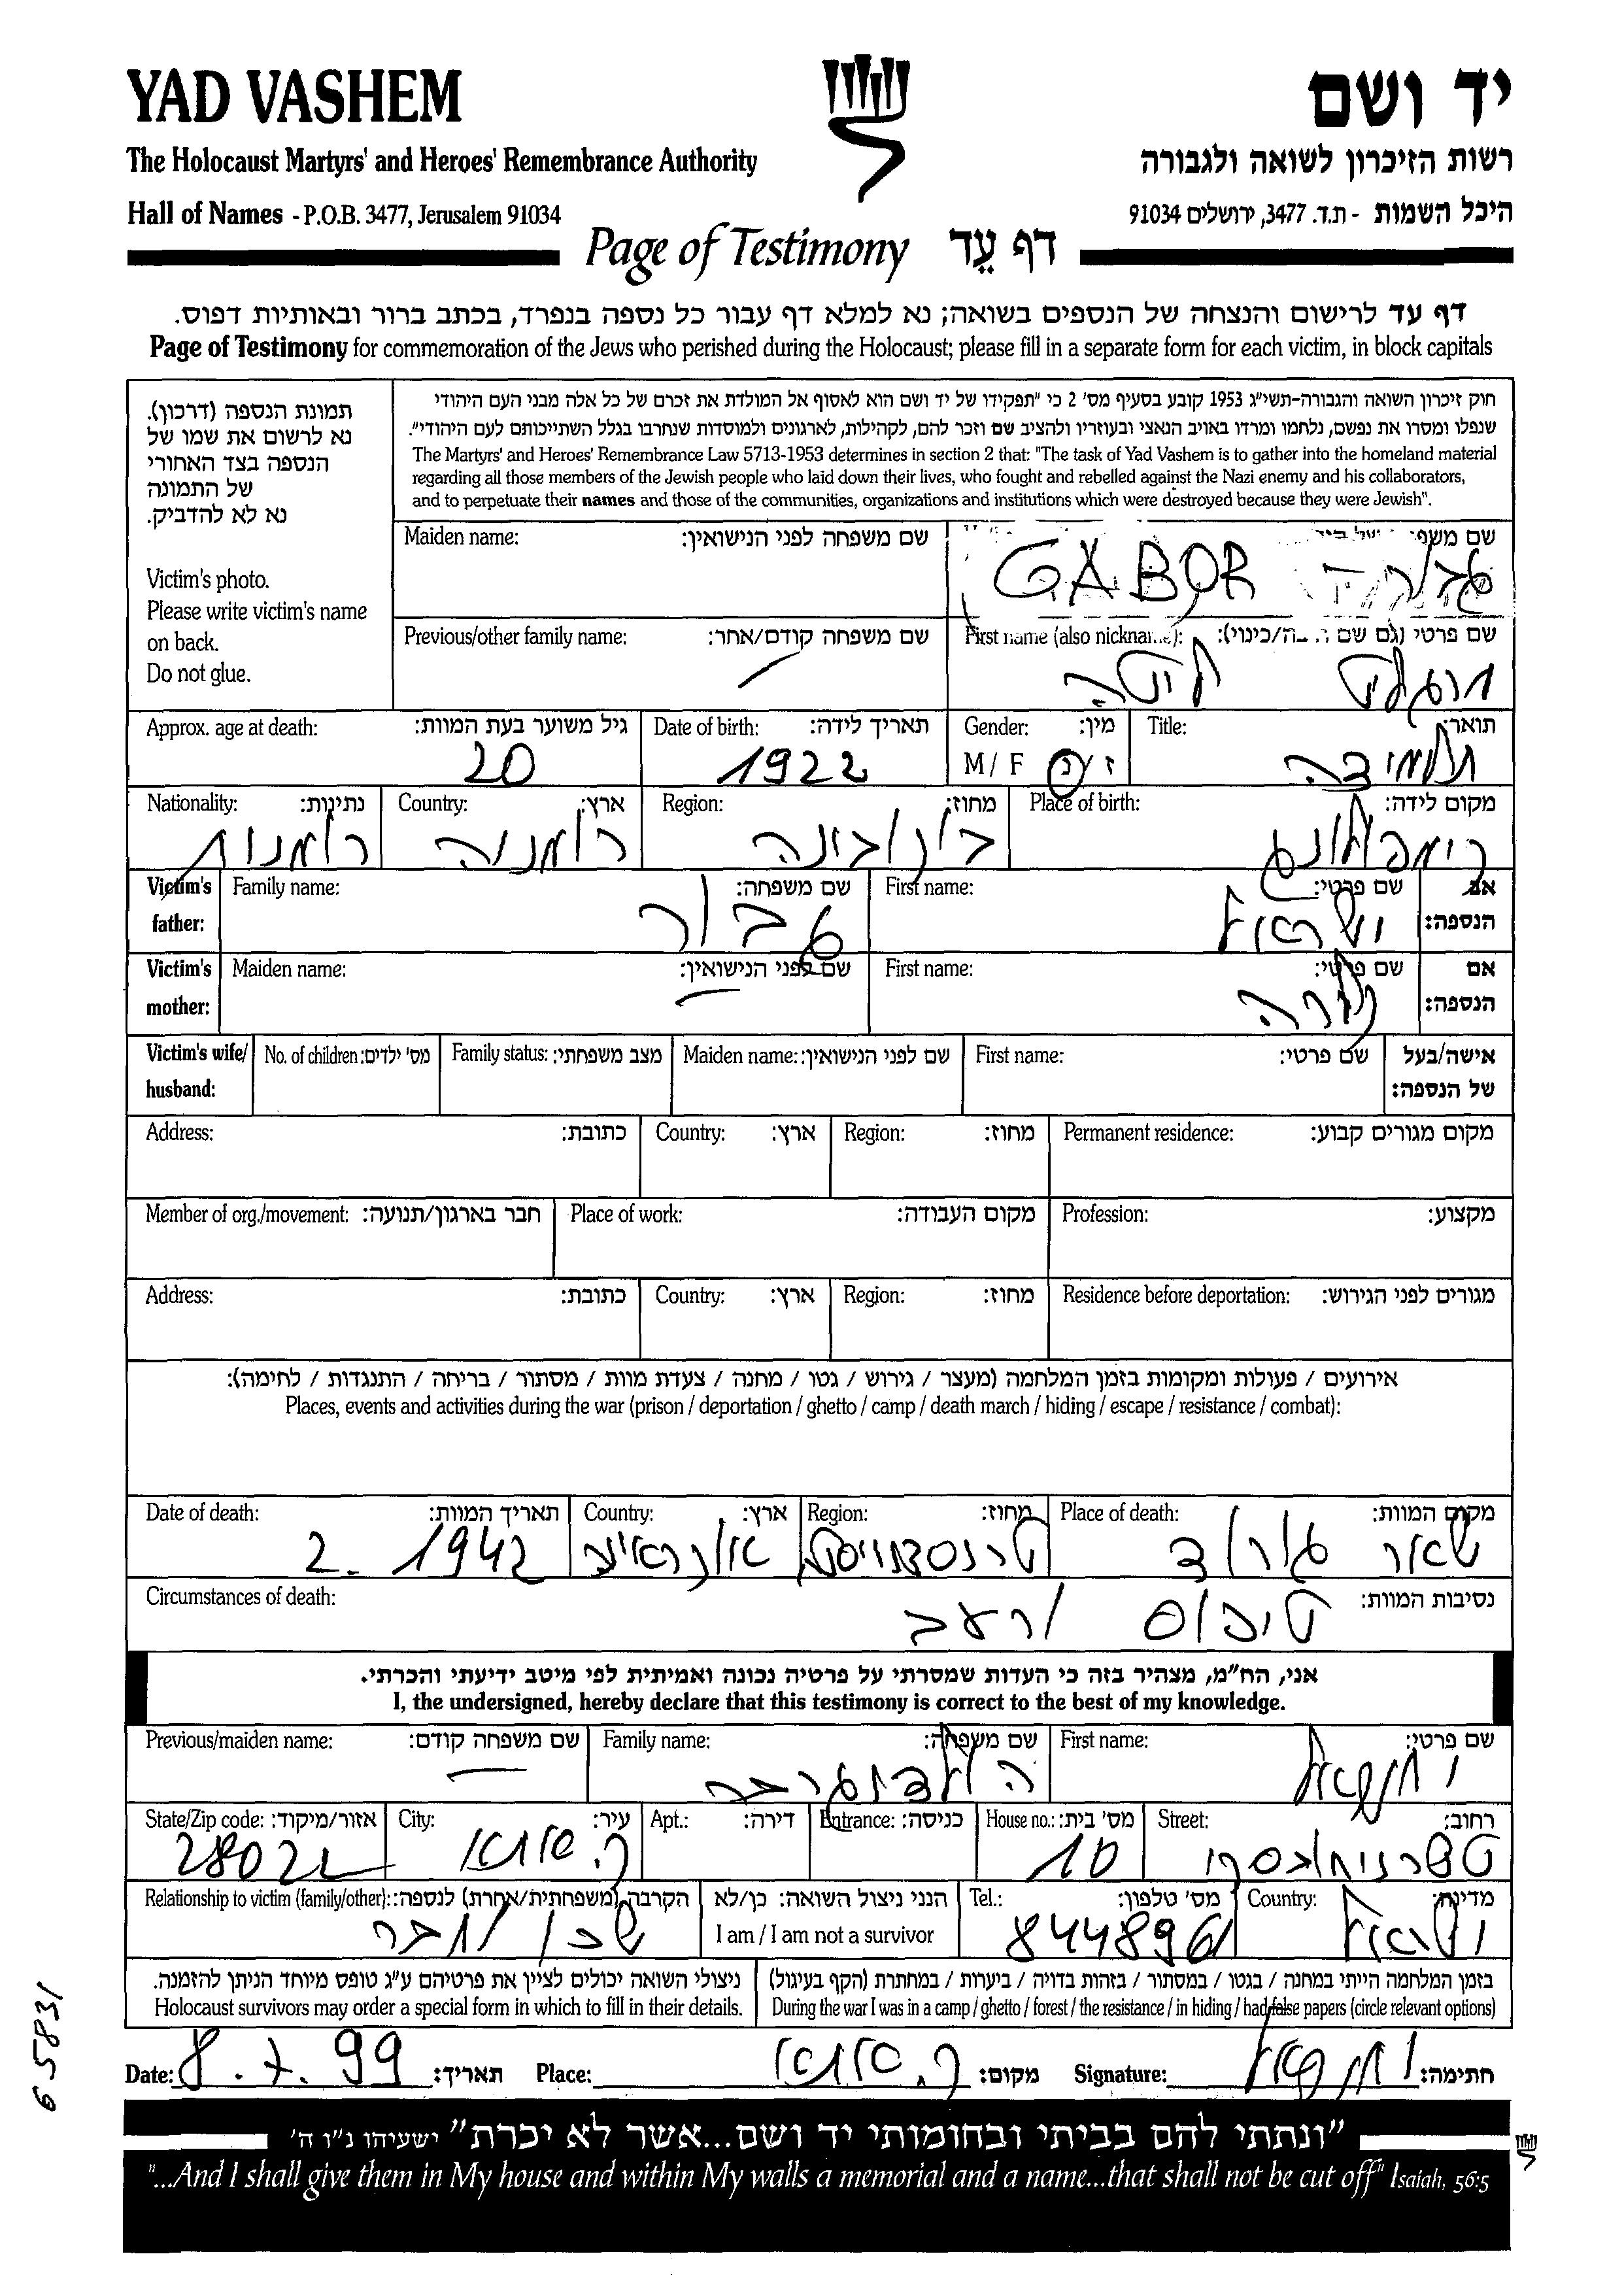 YAD VASHEM
יד ושם
The Holocaust Martyrs' and Heroes' Remembrance Authority
רשות הזיכרון לשואה ולגבורה
Hall of Names - P.O.B. 3477, Jerusalem 91034
היכל השמות - ת.ד. 3477, ירושלים 91034
Page of Testimony דף עֵד
דף עד לרישום והנצחה של הנספים בשואה; נא למלא דף עבור כל נספה בנפרד, בכתב ברור ובאותיות דפוס.
Page of Testimony for commemoration of the Jews who perished during the Holocaust; please fill in a separate form for each victim, in block capitals
תמונת הנספה (דרכון).
נא לרשום את שמו של
הנספה בצד האחורי
של התמונה
נא לא להדביק.
Victim's photo.
Please write victim's name
on back.
Do not glue.
חוק זיכרון השואה והגבורה-תשי"ג 1953 קובע בסעיף מס' 2 כי "תפקידו של יד ושם הוא לאסוף אל המולדת את זכרם של כל אלה מבני העם היהודי
שנפלו ומסרו את נפשם, נלחמו ומרדו באויב הנאצי ובעוזריו ולהציב שם וזכר להם, לקהילות, לארגונים ולמוסדות שנחרבו בגלל השתייכותם לעם היהודי".
The Martyrs' and Heroes' Remembrance Law 5713-1953 determines in section 2 that: "The task of Yad Vashem is to gather into the homeland material
regarding all those members of the Jewish people who laid down their lives, who fought and rebelled against the Nazi enemy and his collaborators,
and to perpetuate their names and those of the communities, organizations and institutions which were destroyed because they were Jewish".
Maiden name: שם משפחה לפני הנישואין:
שם משפ
GABOR
Previous/other family name: שם משפחה קודם/אחר:
First name (also nickname): שם פרטי (גם שם
Approx. age at death: גיל משוער בעת המוות: 20
Date of birth: תאריך לידה: 1922
Gender: מין: M / F ז / נ
Title: תואר: תלמידה
Nationality: נתינות: רומנית
Country: ארץ: רומניה
Region: מחוז: בוקובינה
Place of birth: מקום לידה: קימפולונג
Victim's father: Family name: שם משפחה: גבור
First name: שם פרטי: ישראל
אב הנספה:
Victim's mother: Maiden name: שם לפני הנישואין: —
First name: שם פרטי:
אם הנספה:
Victim's wife/ husband: No. of children: מס' ילדים: Family status: מצב משפחתי: Maiden name: שם לפני הנישואין: First name: שם פרטי: אישה/בעל של הנספה:
Address: כתובת: Country: ארץ: Region: מחוז: Permanent residence: מקום מגורים קבוע:
Member of org./movement: חבר בארגון/תנועה: Place of work: מקום העבודה: Profession: מקצוע:
Address: כתובת: Country: ארץ: Region: מחוז: Residence before deportation: מגורים לפני הגירוש:
אירועים / פעולות ומקומות בזמן המלחמה (מעצר / גירוש / גטו / מחנה / צעדת מוות / מסתור / בריחה / התנגדות / לחימה):
Places, events and activities during the war (prison / deportation / ghetto / camp / death march / hiding / escape / resistance / combat):
Date of death: תאריך המוות: 2. 1942
Country: ארץ: אוקראינה
Region: מחוז: טרנסדניסט
Place of death: מקום המוות: שארגורוד
Circumstances of death: נסיבות המוות: טיפוס ורעב
אני, הח"מ, מצהיר בזה כי העדות שמסרתי על פרטיה נכונה ואמיתית לפי מיטב ידיעתי והכרתי.
I, the undersigned, hereby declare that this testimony is correct to the best of my knowledge.
Previous/maiden name: שם משפחה קודם: —
Family name: שם משפחה: הולדנגרבר
First name: שם פרטי: יחזקאל
State/Zip code: אזור/מיקוד: 28022
City: עיר: ק. מוצקין
Apt.: דירה: Entrance: כניסה: House no.: מס' בית: 10
Street: רחוב: טשרניחובסקי
Relationship to victim (family/other): הקרבה (משפחתית/אחרת) לנספה: שכן / חבר
הנני ניצול השואה: כן/לא
I am / I am not a survivor
Tel.: מס' טלפון: 8448961
Country: מדינת: ישראל
ניצולי השואה יכולים לציין את פרטיהם ע"ג טופס מיוחד הניתן להזמנה.
Holocaust survivors may order a special form in which to fill in their details.
בזמן המלחמה הייתי במחנה / בגטו / במסתור / בזהות בדויה / ביערות / במחתרת (הקף בעיגול)
During the war I was in a camp / ghetto / forest / the resistance / in hiding / had false papers (circle relevant options)
Date: 8.7.99 תאריך: Place: ק. מוצקין מקום: Signature: יחזקאל חתימה:
"ונתתי להם בביתי ובחומותי יד ושם...אשר לא יכרת" ישעיהו נ"ו ה'
"...And I shall give them in My house and within My walls a memorial and a name...that shall not be cut off" Isaiah, 56:5
65831